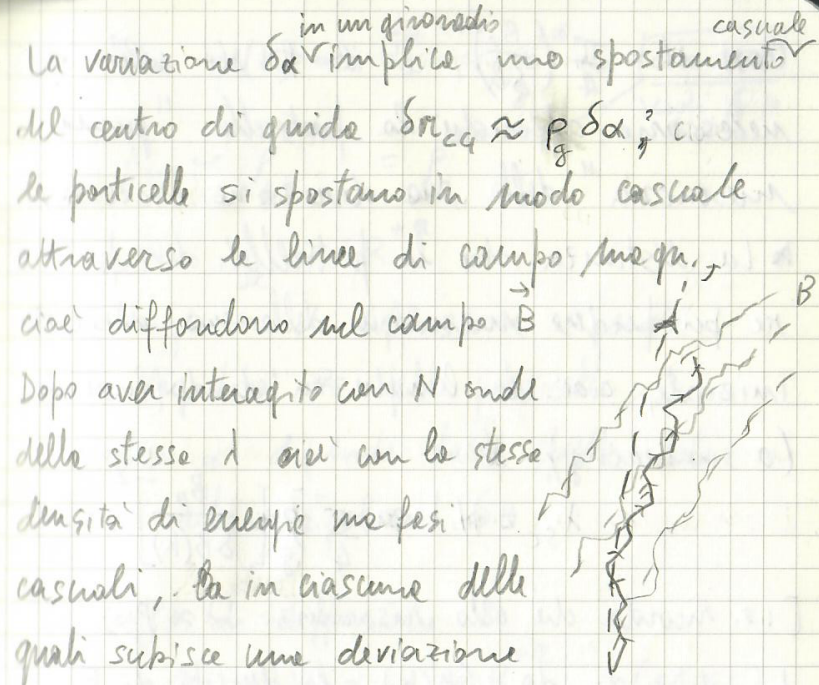 in un giroradio casuale
La variazione δα implica uno spostamento
del centro di guida δr_cg ≈ ρ_g δα, e
le particelle si spostano in modo casuale
attraverso le linee di campo magn.,
cioè diffondono nel campo B⃗
B
Dopo aver interagito con N onde
della stessa λ cioè con la stessa
densità di energia ma fasi
casuali, in ciascuna delle
quali subisce una deviazione